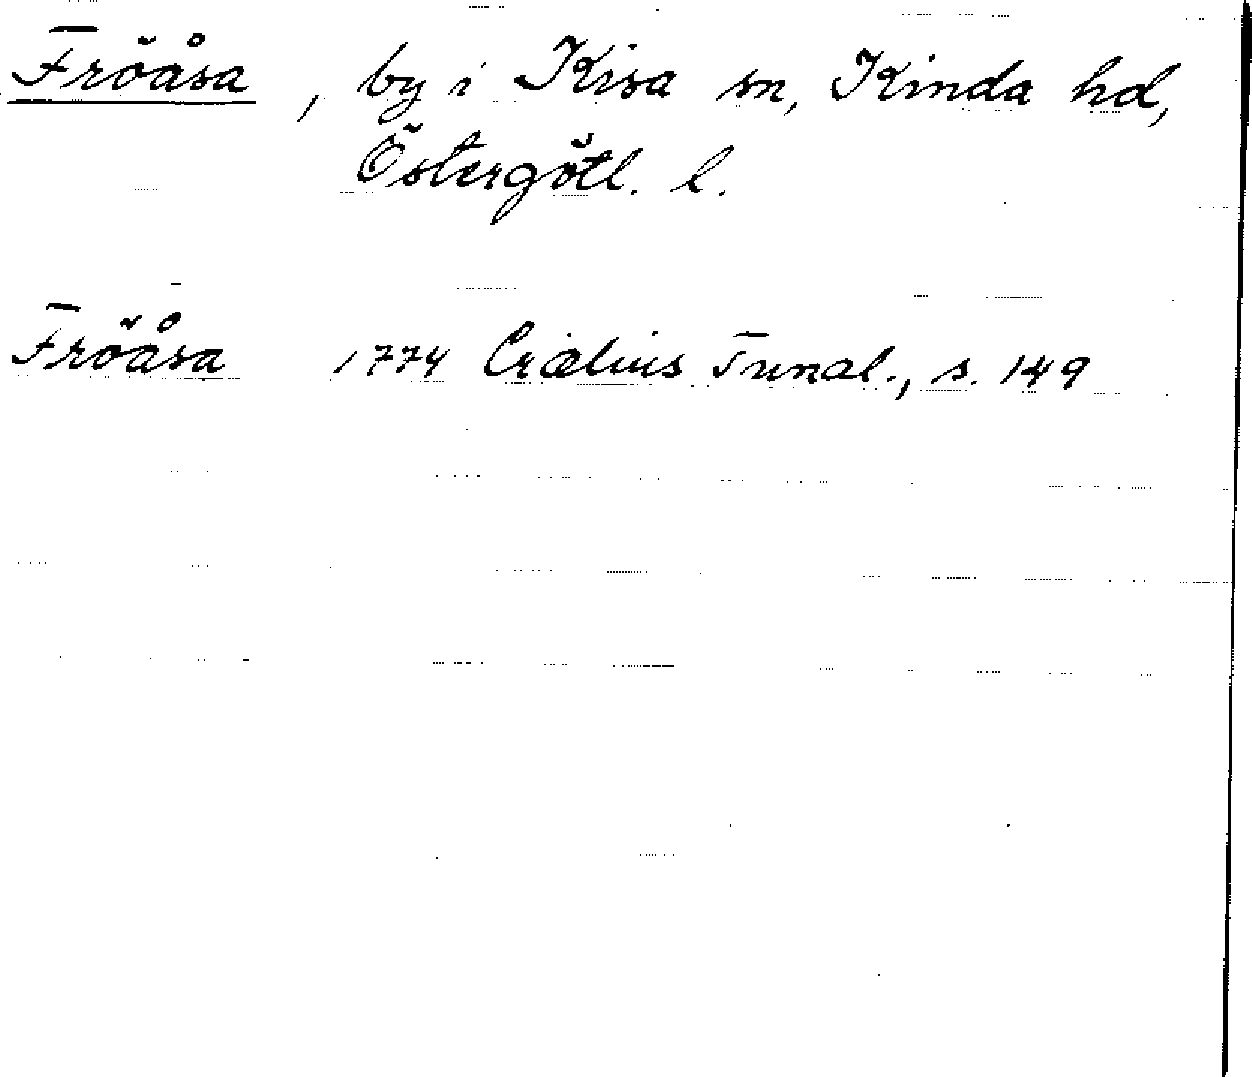 Fröåsa, by i Kisa sn, Kinda hd,
Östergötl. l.
Fröåsa 1774 Crælius Tunal., s. 149